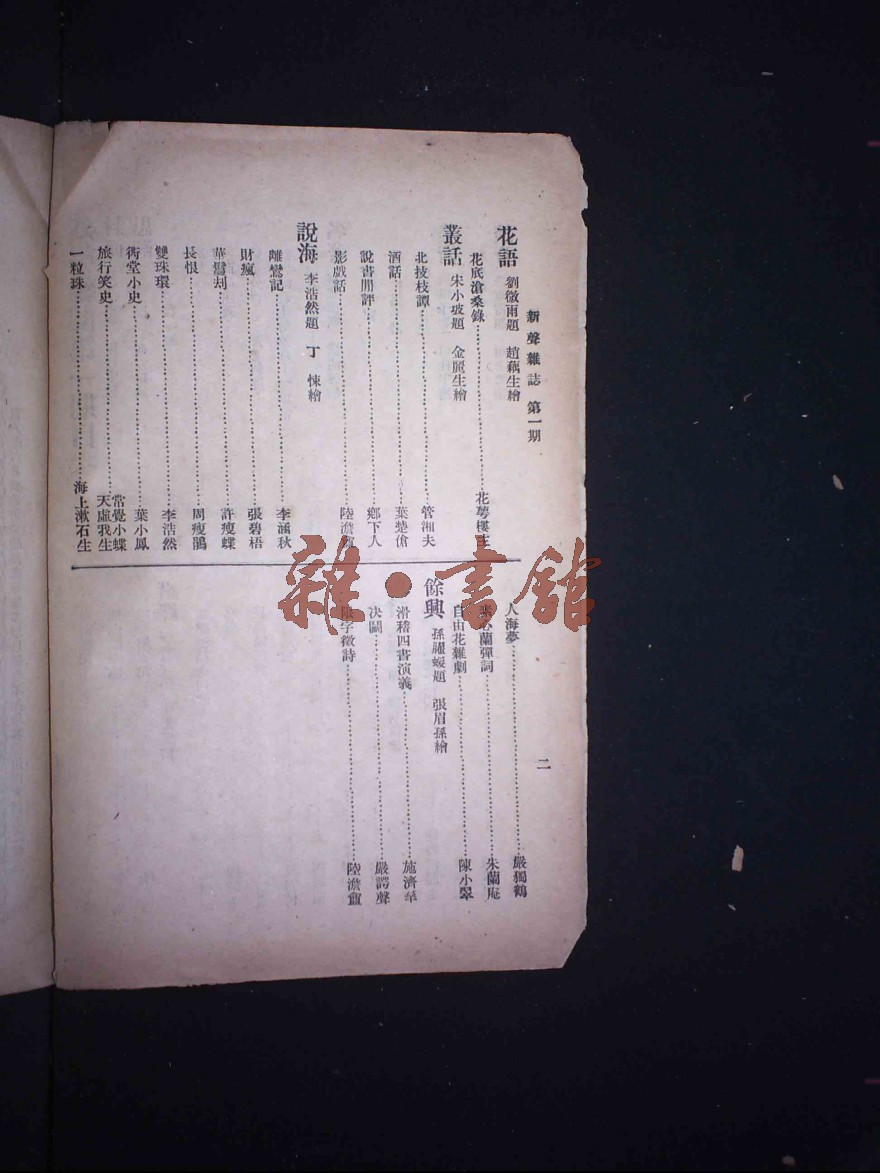 新聲雜誌 第一期
二
花語 劉微雨題 趙藕生繪
花底滄桑錄 花夢樓主
叢話 宋小玻題 金麗生繪
北技枝譚 管湘夫
酒話 葉楚傖
說書閒評 鄉下人
影戲話 陸澹盦
說海 李浩然題 丁悚繪
雌鴛記 李涵秋
財瘋 張碧梧
華鬘刦 許瘦蝶
長恨 周瘦鵑
雙珠環 李浩然
衖堂小史 葉小鳳
旅行笑史 常覺小蝶天虛我生
一粒珠 海上漱石生
人海夢 嚴獨鶴
心蘭彈詞 朱蘭庵
自由花雜劇 陳小翠
餘興 孫𦈛媛題 張眉孫繪
滑稽四書演義 施濟羣
決鬬 嚴諤聲
字徵詩 陸澹盦
雜·書館